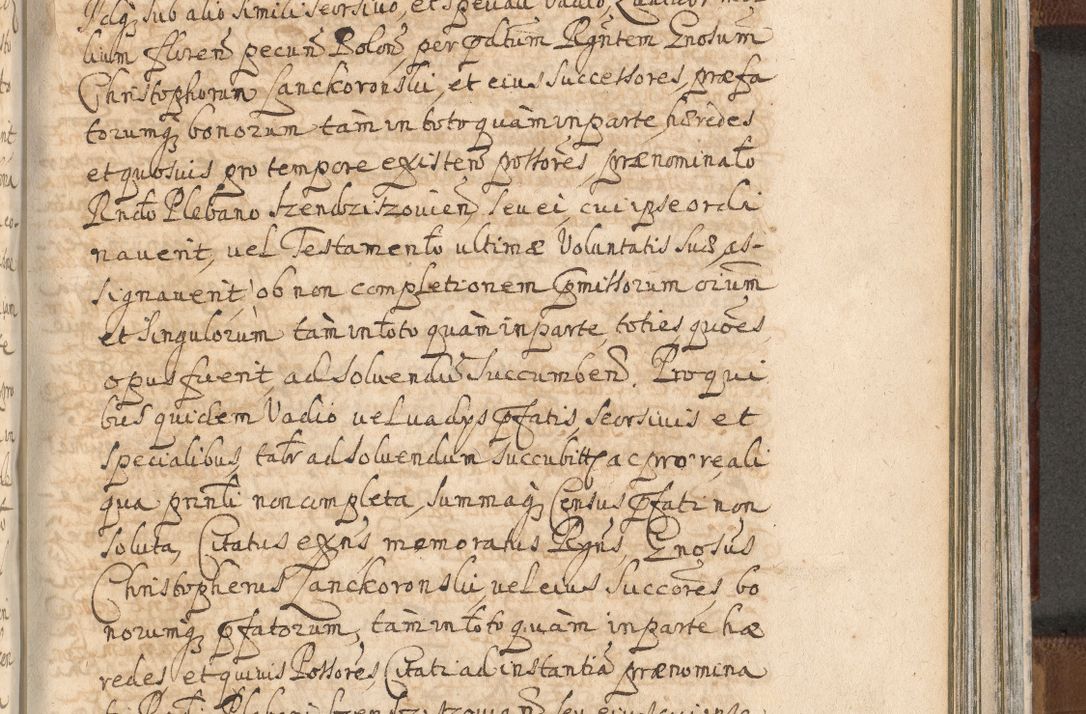 sub alio simili seorsivo, et speciali Vadio,
lium floreñ pecuñ Poloñ, per p̃dtum Rgntem Gnosum
Christophorum Lanckoronski, et eius Successores, præfa
torumq̨ bonorum tàm in toto quàm in parte hæredes
et quosuis pro tempore existeñ possores, prænominat̃o
Rndo Plebano Szendziszovieñ, seu ei, cui ipse ordi
nauerit, vel Testament̃o ultimæ Voluntatis suæ as-
signauerit, ob non completionem p̃missorum oium̃
et singulorum tàm in tot̃o quàm in parte, toties quoẽs
opus fuerit, ad soluendũ Succumbeñ. Pro qui
bus quidem Vadio vel vadys p̃fatis, seorsivis et
specialibus, talr̃ ad soluendum succubitt, ac pro reali
qua prinl̃i non completa, summaq̨ Census p̃fati non
soluta, Citatus exñs memoratus Rgñs, Gnosus
Christopherus Lanckoronski, vel eius Succorẽs, bo
norumq̨ p̃fatorum, tàm in tot̃o quàm in parte hæ
redes et quiuis Possorẽs, Citati ad instantiã prænomina